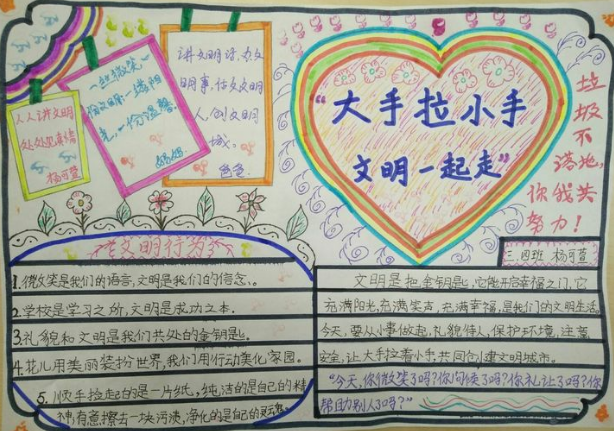 人人讲文明
处处见真情
杨可萱
一起微笑~
一缕阳
光,一份温馨。
妈妈
讲文明话,办文
明事,估女文明
人,创文明
城。
爸爸
“大手拉小手
文明一起走”
垃圾不落地,
你我共
努力!
三.四班 杨可萱
文明行为
1.微笑是我们的语言,文明是我们的信念.。
2.学校是学习之所,文明是成功之本.
3.礼貌和文明是我们共处的金钥匙。
4.花儿用美丽装扮世界,我们用行动美化家园。
5.顺手捡起的是一片纸,纯洁的是自己的精
神,有意擦去一块污渍,净化的是自己的灵魂。
文明是把金钥匙,它能开启幸福之门,它
充满阳光,充满笑声,充满幸福,是我们的文明生活。
今天,要从小事做起,礼貌待人,保护环境,注意
安全,让大手拉着小手共同创建文明城市。
“今天,你微笑了吗?你问候了吗?你礼让了吗?你
帮助别人了吗?”